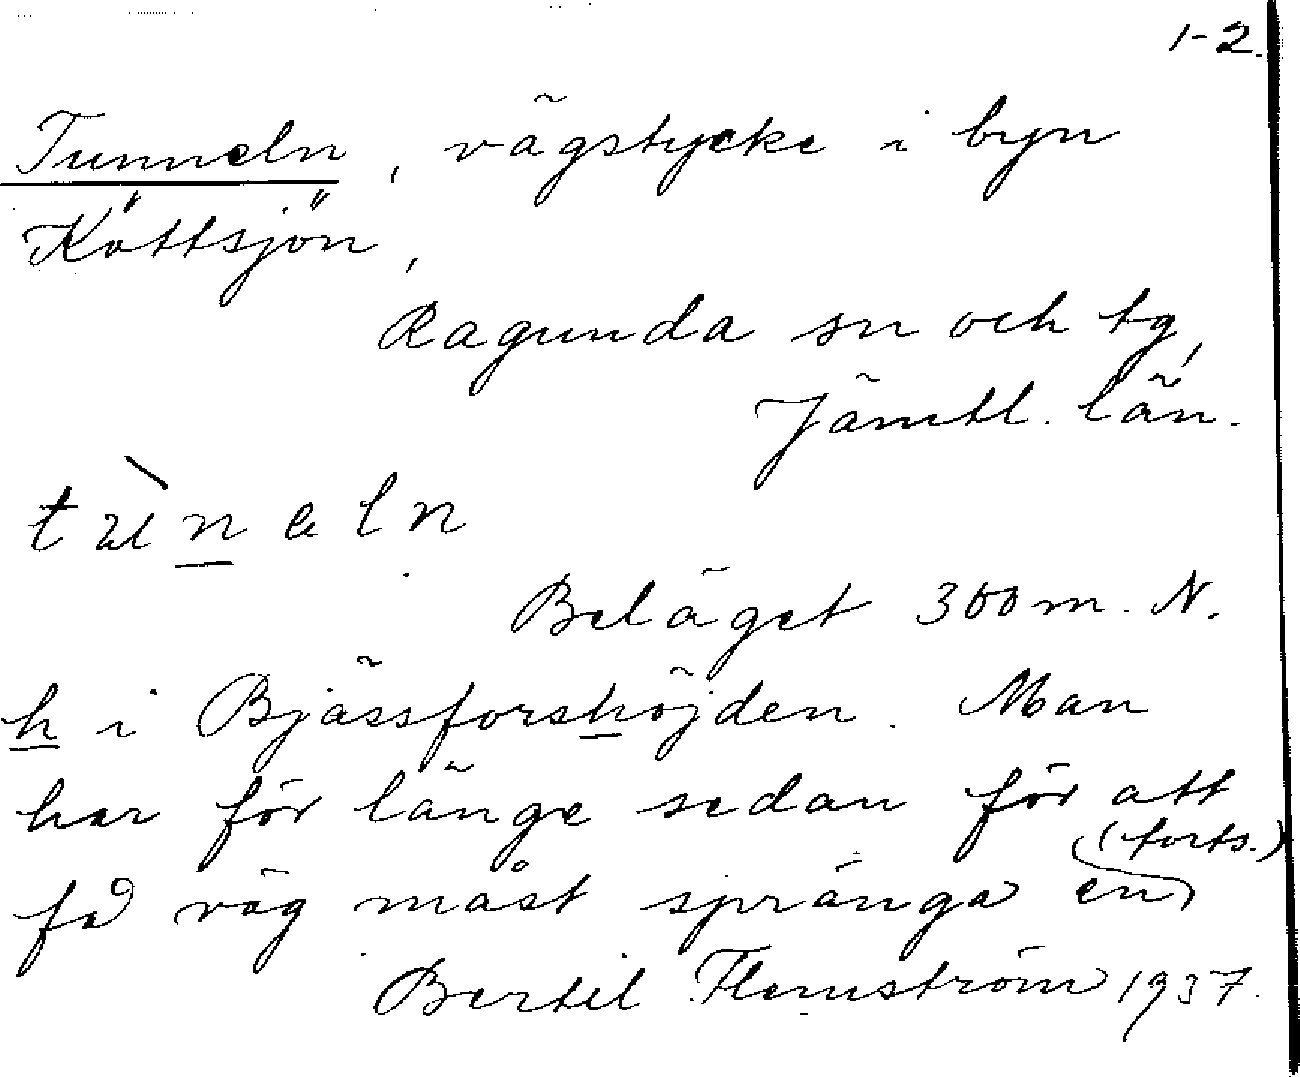 1-2.
Tunneln, vägstycke i byn
Köttsjön,
Ragunda sn och tg,
Jämtl. län.
tùneln
Beläget 300 m. N.
h i Bjässforshöjden. Man
har för länge sedan för att
(forts.)
få väg måst spränga en
Bertil Flemström 1937.